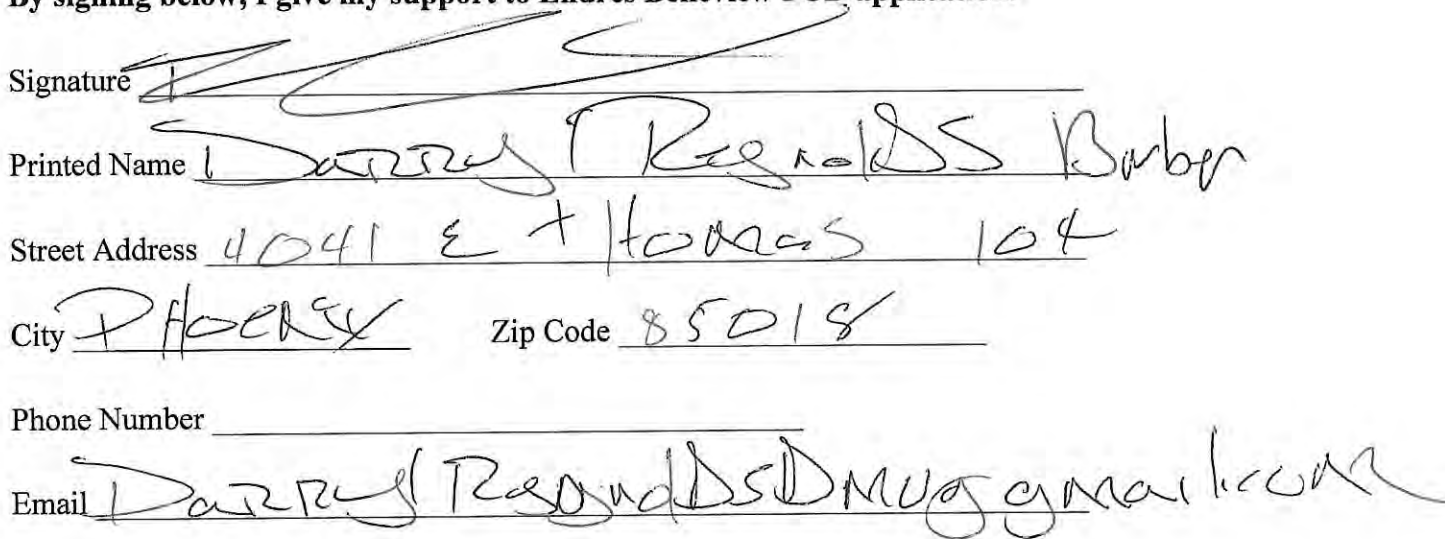 By signing below, I give my support to Endres Belleview PUD application.
Signature
Printed Name Darryl Reynolds Barber
Street Address 4041 E Thomas 104
City PHoenix Zip Code 85018
Phone Number
Email Darryl Reynolds gmail.com